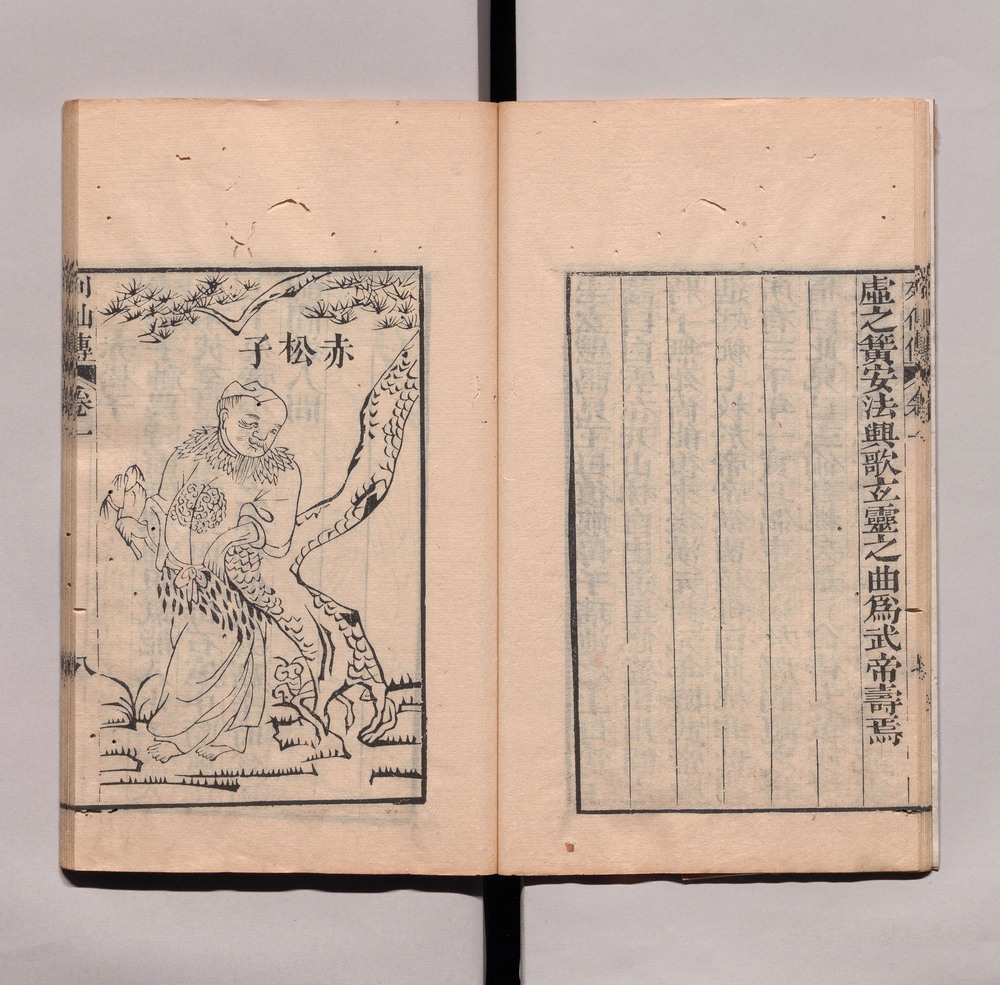 虛之簧安法興歌玄靈之曲爲武帝壽焉
赤松子
列仙傳 卷一
八